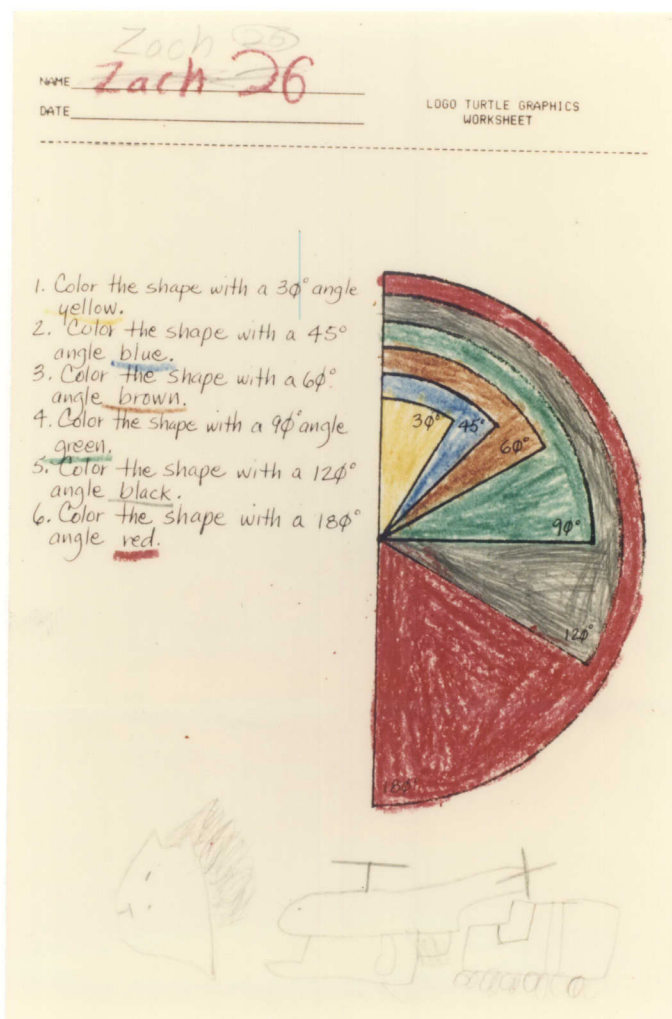 Zach 26
NAME Zach 26
DATE
LOGO TURTLE GRAPHICS
WORKSHEET
1. Color the shape with a 3φ° angle
yellow.
2. Color the shape with a 45°
angle blue.
3. Color the shape with a 6φ°
angle brown.
4. Color the shape with a 9φ° angle
green.
5. Color the shape with a 12φ°
angle black.
6. Color the shape with a 18φ°
angle red.
3φ°
45°
6φ°
9φ°
12φ°
18φ°